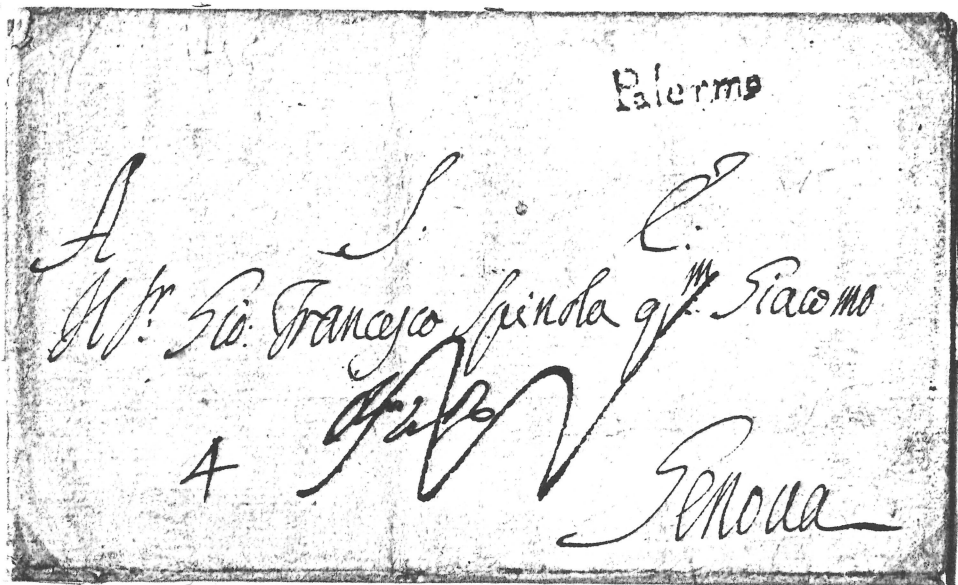 Palermo
A S. E.:
Il Sr. Gio: Francesco Spinola qm. Giacomo
4
Genoua